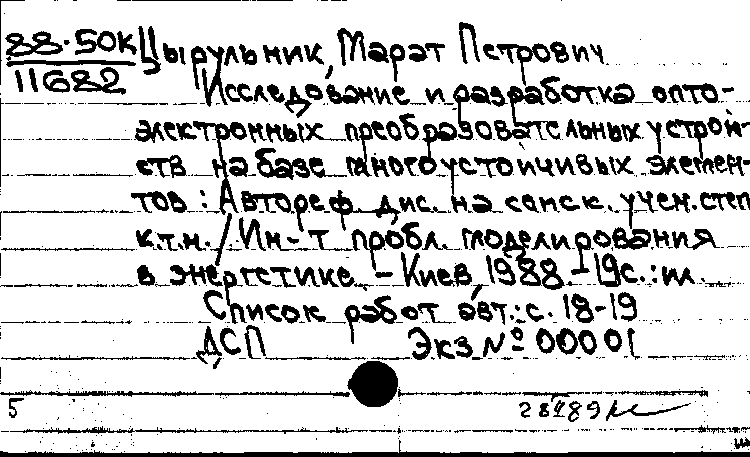 88-50к Цырульник, Марат Петрович
11682 Исследование и разработка опто-
электронных преобразовательных устрой-
ств на базе многоустойчивых элемен-
тов : Автореф. дис. на соиск. учен. степ
к.т.н. / Ин-т пробл. моделирования
в энергетике. - Киев, 1988. - 19с. : ил.
Список работ авт.: с. 18-19
ДСП Экз № 00001
5